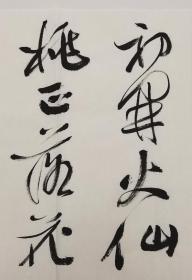 初開火仙
桃正落花